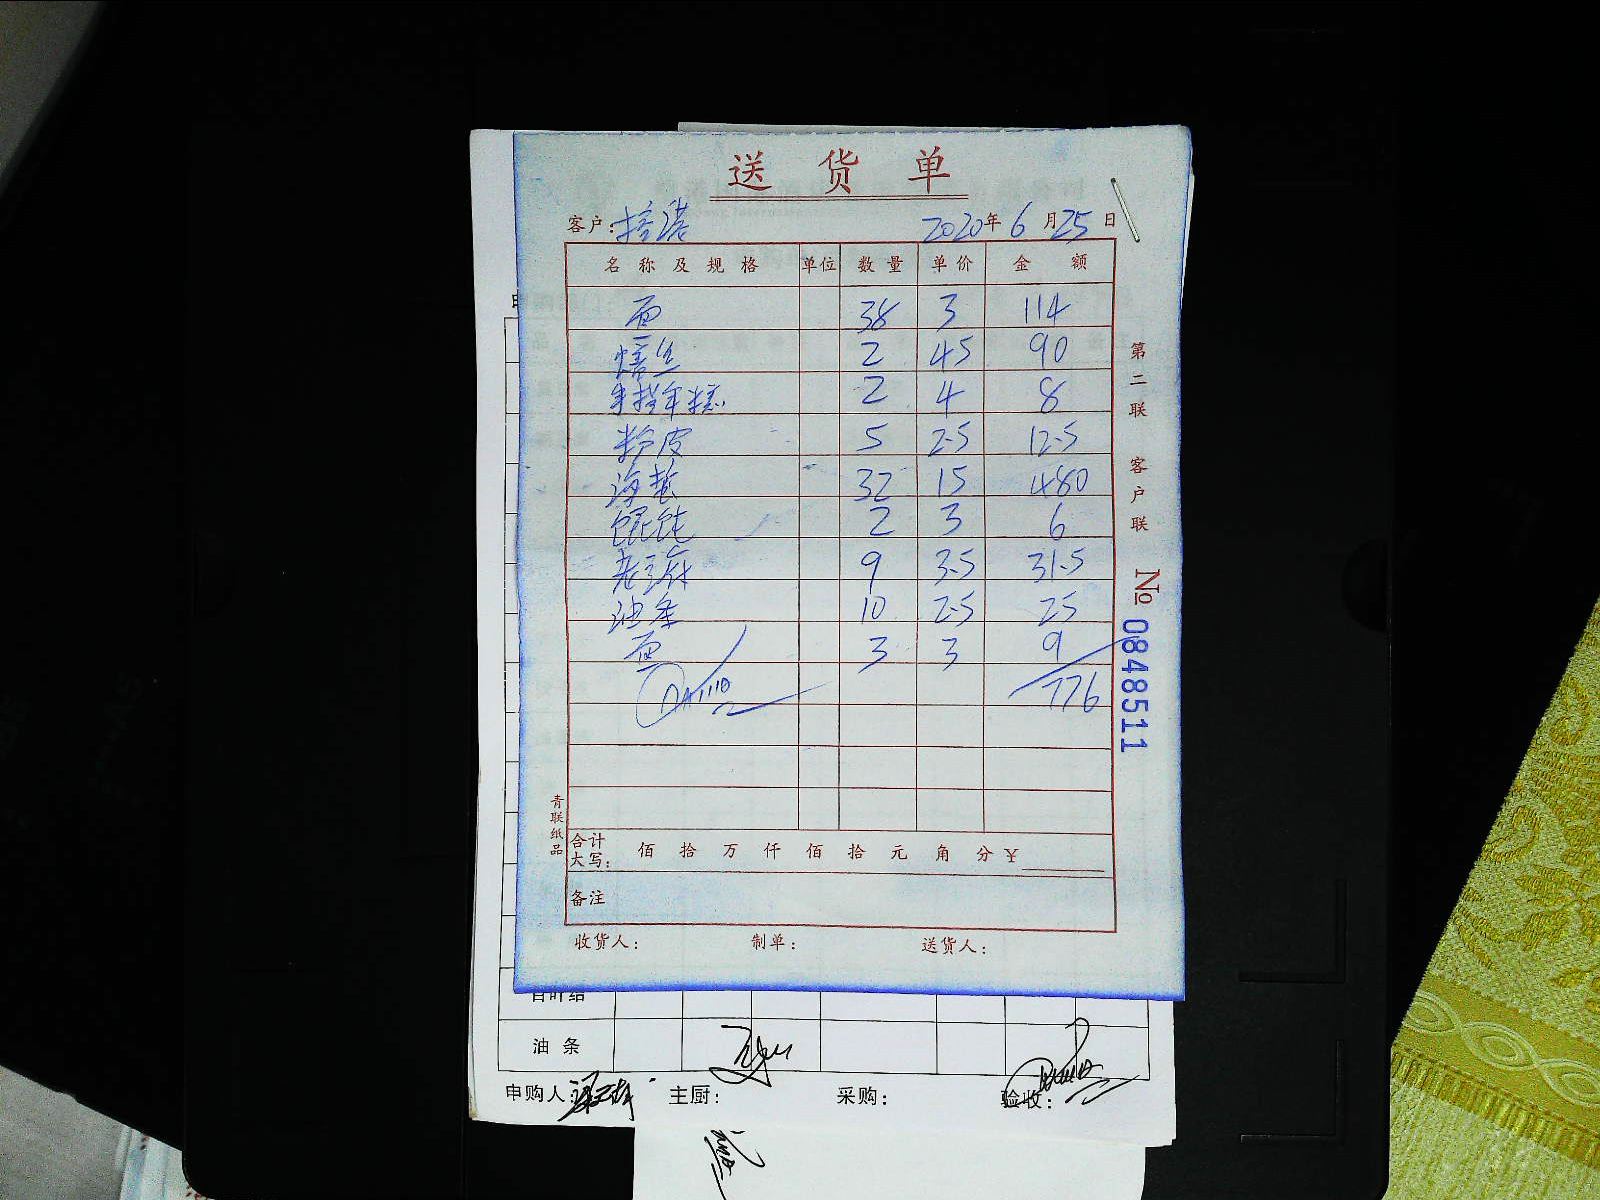 送货单
客户: 2020年6月25日
名称及规格 单位 数量 单价 金额
面 38 3 114
烤夫 2 45 90
手撕年糕 2 4 8
粉皮 5 2.5 12.5
海蜇 32 15 480
馄饨 2 3 6
老豆腐 9 3.5 31.5
油条 10 2.5 25
面 3 3 9
776
合计大写: 佰 拾 万 仟 佰 拾 元 角 分 ¥
备注
收货人: 制单: 送货人:
青联纸品
第二联 客户联
№ 0848511
百叶结
油条
申购人: 主厨: 采购: 验收: